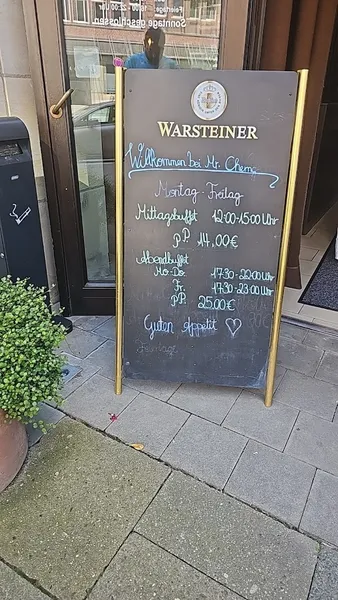 Feiertage: 16:00 - 22:00 Uhr
Sonntage geschlossen
WARSTEINER
Willkommen bei Mr. Cheng
Montag - Freitag
Mittagsbuffet 12:00-15:00 Uhr
P.P. 14,00€
Abendbuffet
Mo-Do. 17:30-22:00 Uhr
Fr. 17:30-23:00 Uhr
P.P. 25,00€
Guten Appetit ♡